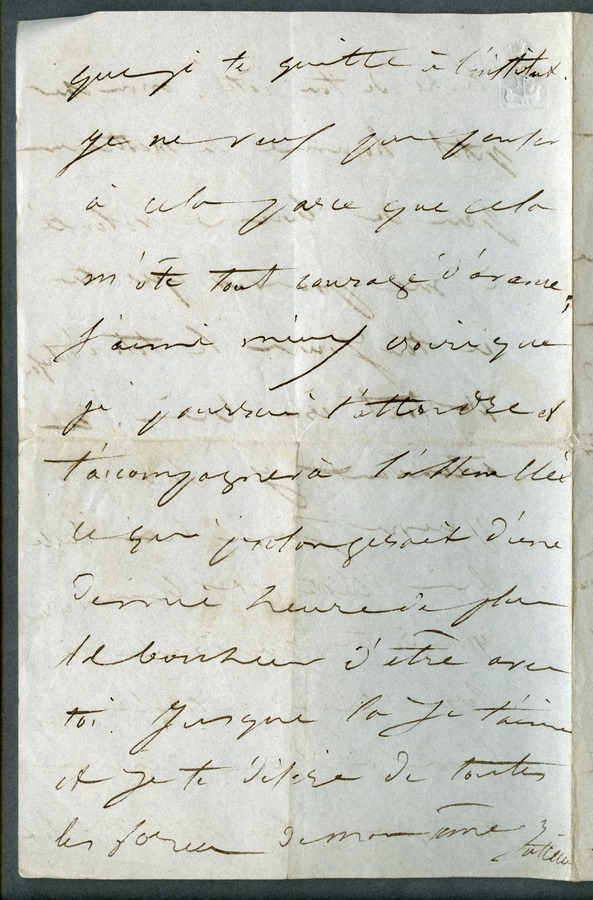 que je te quitte à l'institut.
Je ne veux pas penser
à cela parce que cela
m'ôte tout courage d'avance;
J'aime mieux croire que
je pourrai t'attendre et
t'accompagner à l'assemblée
ce qui prolongerait d'une
demie heure de plus
le bonheur d'être avec
toi. Jusque là je t'aime
et je te désire de toutes
les forces de mon âme
Juliette